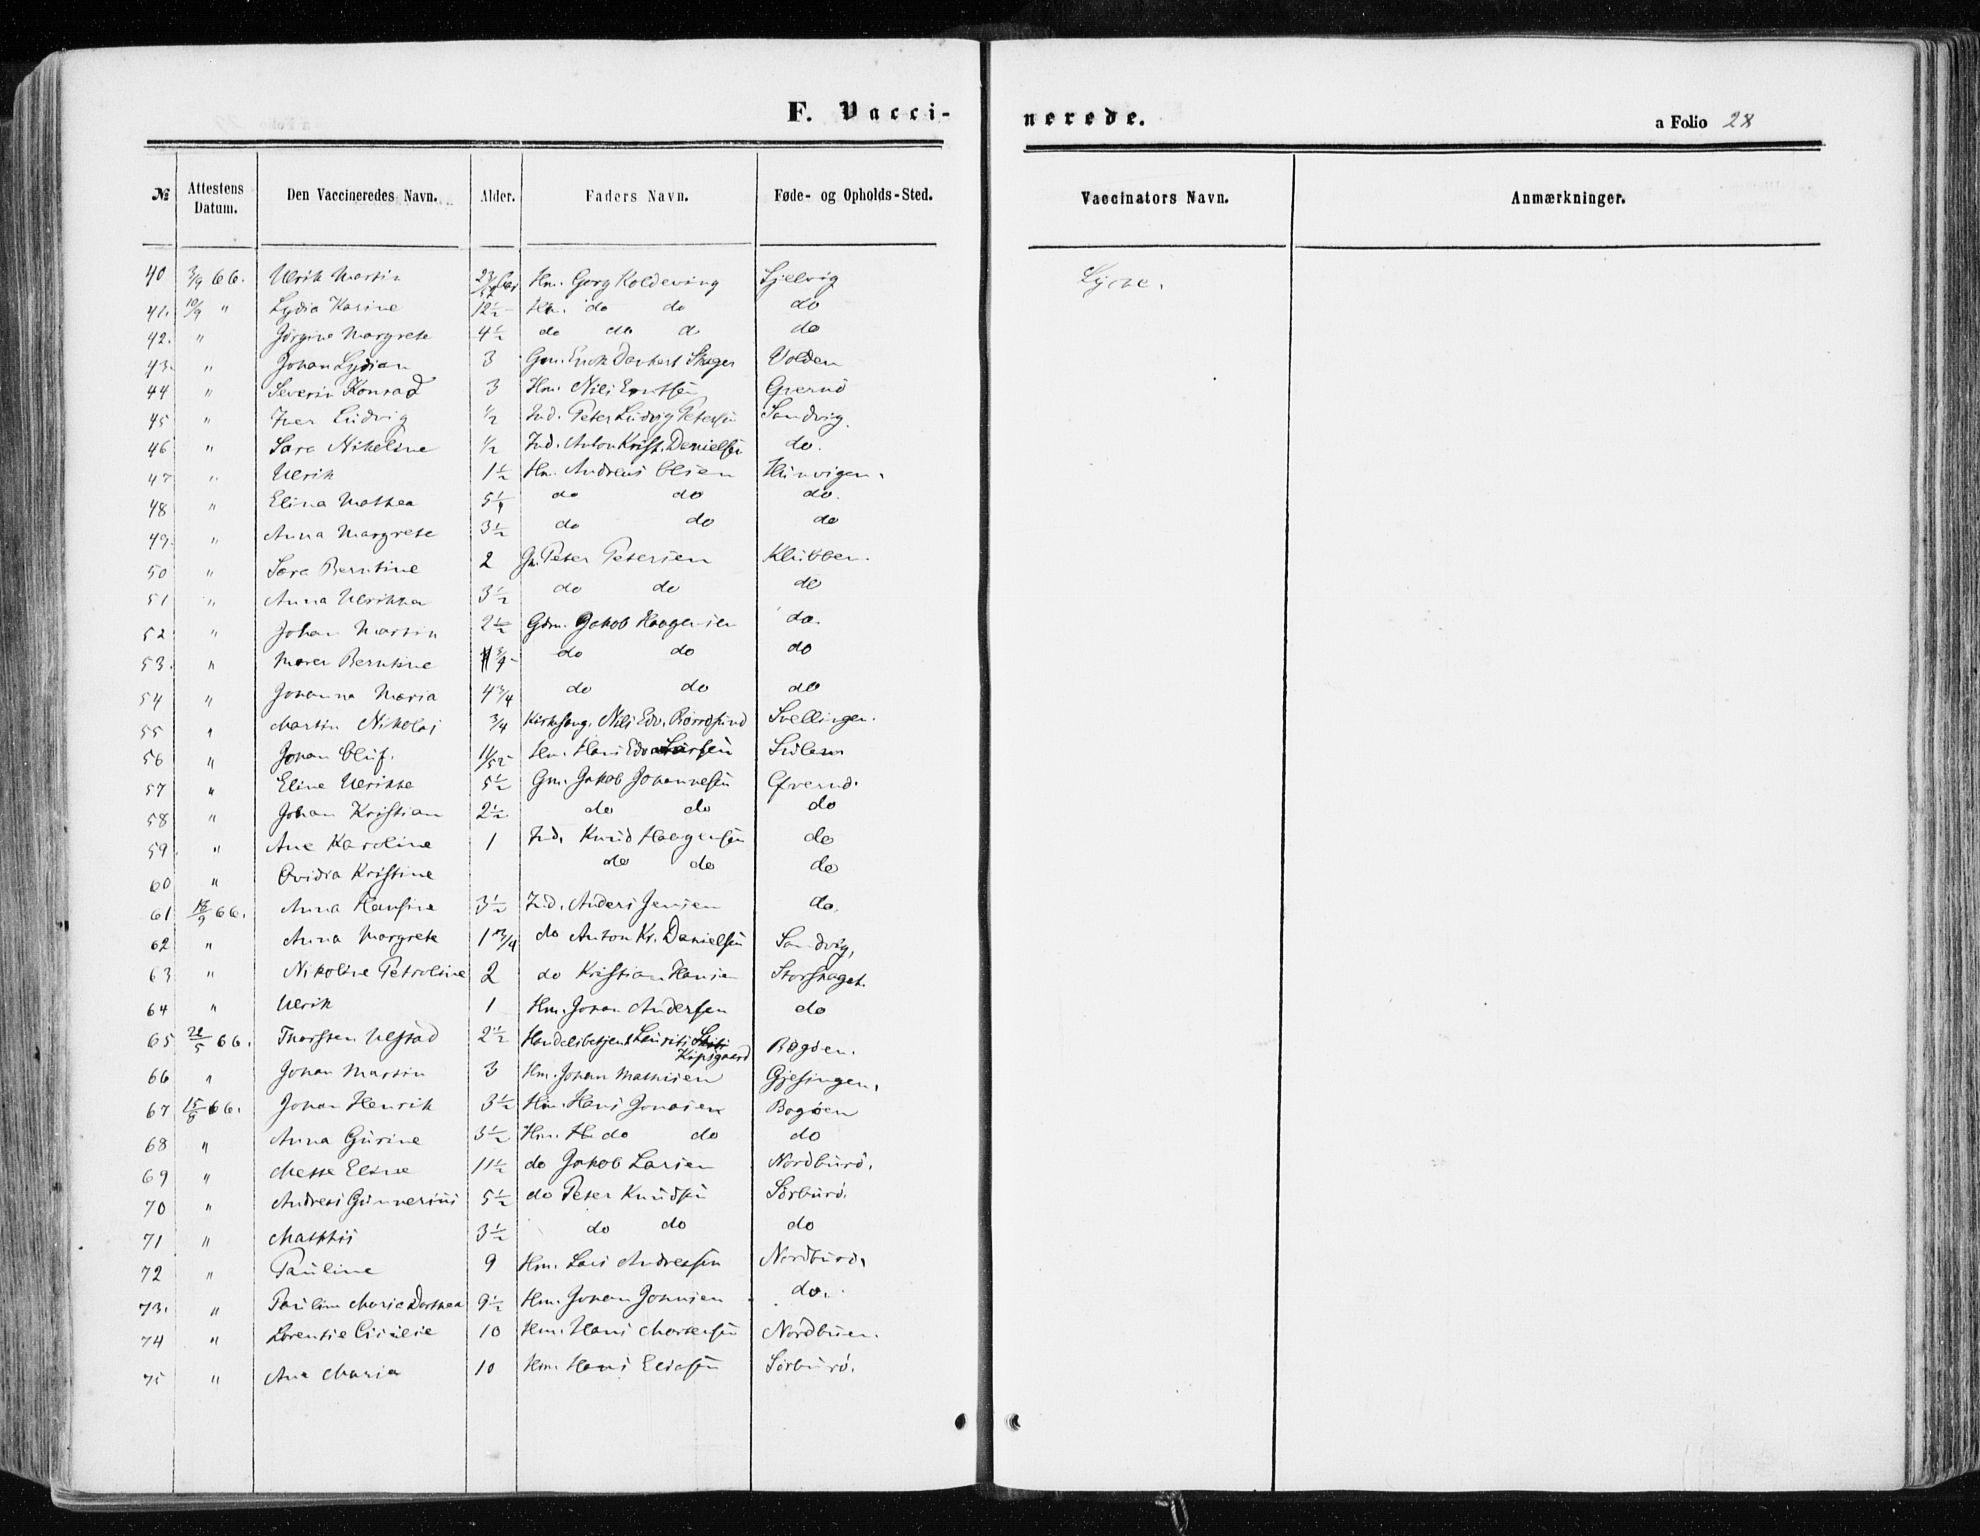 F. Vacci-
nerede.
a Folio 28
№ Attestens Datum. Den Vaccineredes Navn. Alder. Faders Navn. Føde- og Opholds-Sted. Vaccinators Navn. Anmærkninger.
40 3/9 66. Ulrik Martin Hm. Georg Koldeving Sjelvig
41. 10/9 " Lydia Karine 12½ Hm. do do do
42. " Jørgine Margrete 4½ do do do do
43. " Johan Lydian 3 Gm. Erik Dankert Skager Volden
44 " Severin Konrad 3 Hm. Nils Erntsen Qvernø
45 " Iver Ludvig ½ Ind. Peter Ludvig Petersen Sandvig.
46 " Sara Nikoline ½ Ind. Anton Krist. Danielsen do.
47 " Ulrik 1½ Hm. Andreas Olsen Hunvigen.
48 " Elina Mathea 5¼ do do do.
49. " Anna Margrete 3½ do do do
50 " Sara Berntine 2 Gm. Peter Petersen Klubben.
51 " Anna Ulrikka 3½ do do do
52 " Johan Martin 2½ Gdm. Jakob Haagensen do.
53. " Maren Berntine ¾ do do do
54 " Johanna Maria 4¾ do do do
55 " Martin Nikolai ¾ Kirksang. Nils Edv. Børrøsund Svellingen.
56 " Johan Oluf. 11/52 Hm. Hans Edv. Larsen
57 " Eline Ulrikke 5½ Gm. Jakob Johannesen Qvernø.
58 " Johan Kristian 2½ do do do
59 " Ane Karoline 1 Ind. Knud Haagensen do
60 " Ovidia Kristine do do do
61 18/9 66. Anna Hansine 3½ Ind. Anders Jensen do.
62 " Anna Margrete 1¾ do Anton Kr. Danielsen Sandvig,
63 " Nikoline Petroline 2 do Kristian Hansen Storskaget.
64 " Ulrik 1 Hm. Johan Andersen do
65 66. Thorsten Ulstad 2½ Handelsbetjent Laurits Kipsgaard Bogøen.
66 " Johan Martin 3 Hm. Johan Mathisen Gjesingen.
67 15/8 66. Johan Henrik 3½ Hm. Hans Jonasen Bogøen
68 " Anna Gurine 3½ Hm. H. do do do
69 " Mette Eline 11½ do Jakob Larsen Nordburø.
70 " Andreas Gunnerius 5½ do Peter Knudsen Sørburø.
71 " Matthis 3½ do do do
72 " Pauline 9 Hm. Lars Andreasen Nordburø.
73. " Pauline Marie Dorthea 9½ Hm. Johan Johnsen do.
74 " Lorentse Cicilie 10 Hm. Hans Mortensen Nordbuen.
75 " Ane Maria 10 Hm. Hans Eliasen Sørburø.